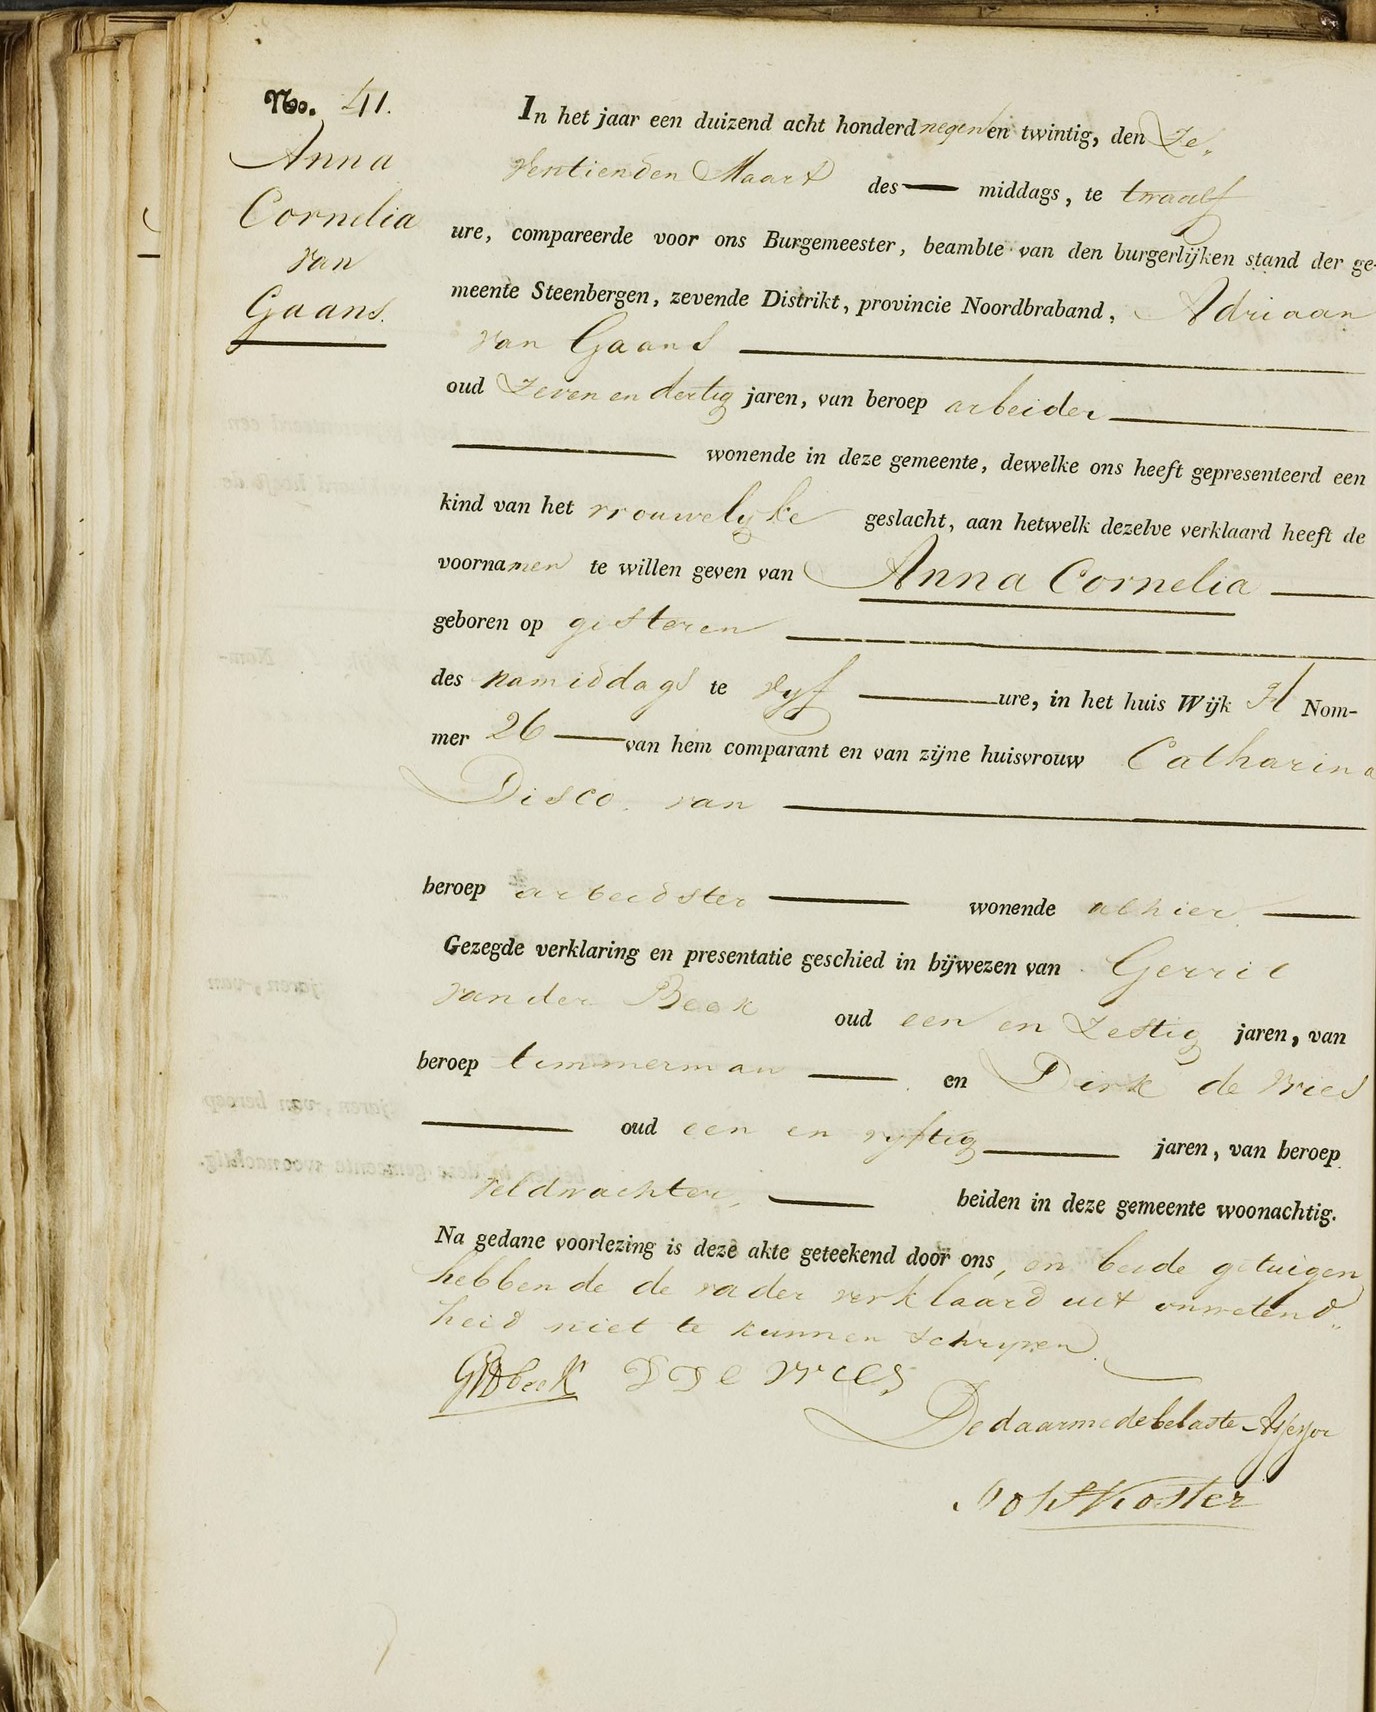 No. 41.
Anna
Cornelia
van
Gaans.
In het jaar een duizend acht honderd negen en twintig, den Ze„
ventienden Maart des — middags, te twaalf
ure, compareerde voor ons Burgemeester, beambte van den burgerlijken stand der ge-
meente Steenbergen, zevende Distrikt, provincie Noordbraband, Adriaan
van Gaans
oud Zeven en dertig jaren, van beroep arbeider
wonende in deze gemeente, dewelke ons heeft gepresenteerd een
kind van het vrouwelyke geslacht, aan hetwelk dezelve verklaard heeft de
voornamen te willen geven van Anna Cornelia
geboren op gisteren
des namiddags te vyf ure, in het huis Wijk H Nom-
mer 26 van hem comparant en van zijne huisvrouw Catharina
Disco. van
beroep arbeidster wonende alhier.
Gezegde verklaring en presentatie geschied in bijwezen van Gerrit
van der Beek oud een en Zestig jaren, van
beroep timmerman en Dirk de Vries
oud een en vyftig jaren, van beroep
veldwachter, beiden in deze gemeente woonachtig.
Na gedane voorlezing is deze akte geteekend door ons, en beide getuigen
hebbende de vader verklaard uit onwetend„
heid niet te kunnen schryven.
GVDbeek D De Vries
De daarmede belaste Assessor
Koster